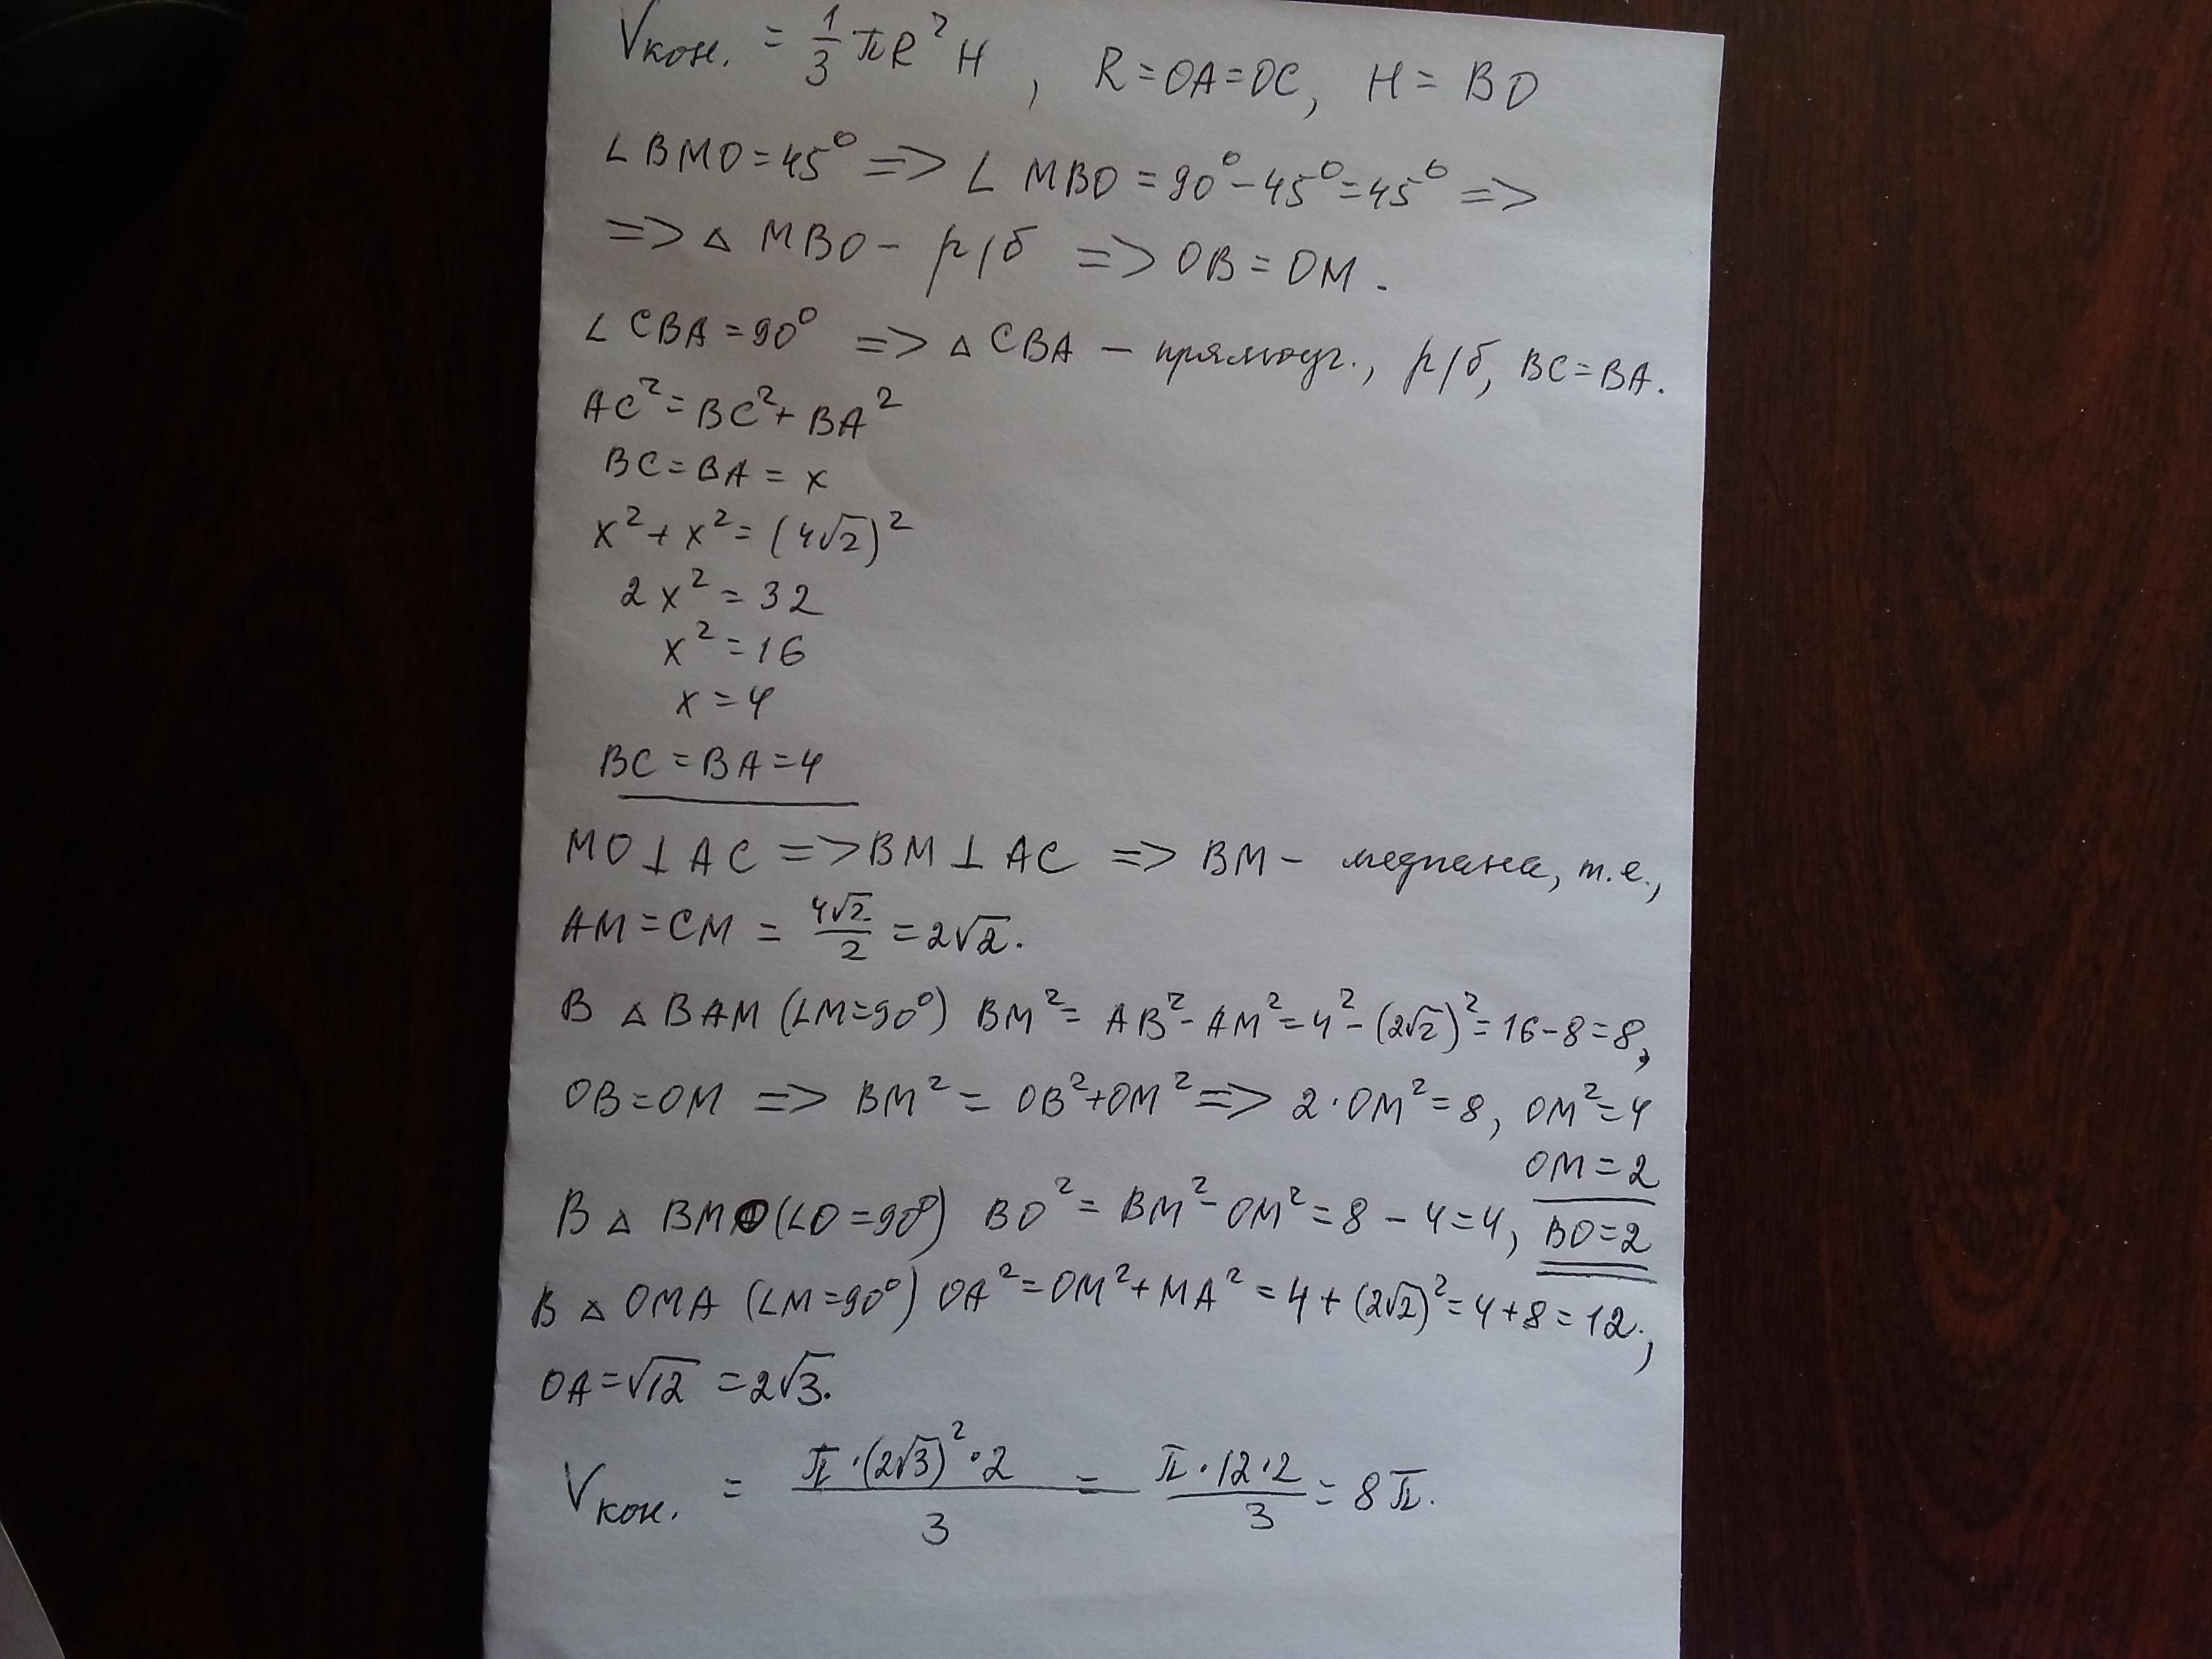 Vкон. = 1/3 πR² H , R=OA=OC, H = BO
∠BMO=45° => ∠ MBO = 90°-45°=45° =>
=> △ MBO - р/б => OB = OM .
∠ CBA=90° => △ CBA - прямоуг., р/б, BC=BA.
AC²=BC²+BA²
BC=BA = x
x²+x²=(4√2)²
2x²=32
x²=16
x=4
BC=BA=4
MO⊥AC =>BM⊥AC => BM- медиана, т.е.,
AM=CM = 4√2/2 =2√2.
В △ BAM (∠M=90°) BM²= AB²-AM²=4²-(2√2)²=16-8=8,
OB=OM => BM² = OB²+OM² => 2·OM²=8, OM²=4
OM=2
В △ BMO(∠O=90°) BO²= BM²-OM²=8-4=4, BO=2
В △ OMA (∠M=90°) OA²=OM²+MA²=4+(2√2)²=4+8=12.,
OA=√12 =2√3.
Vкон. = π·(2√3)²·2/3 = π·12·2/3 = 8π.